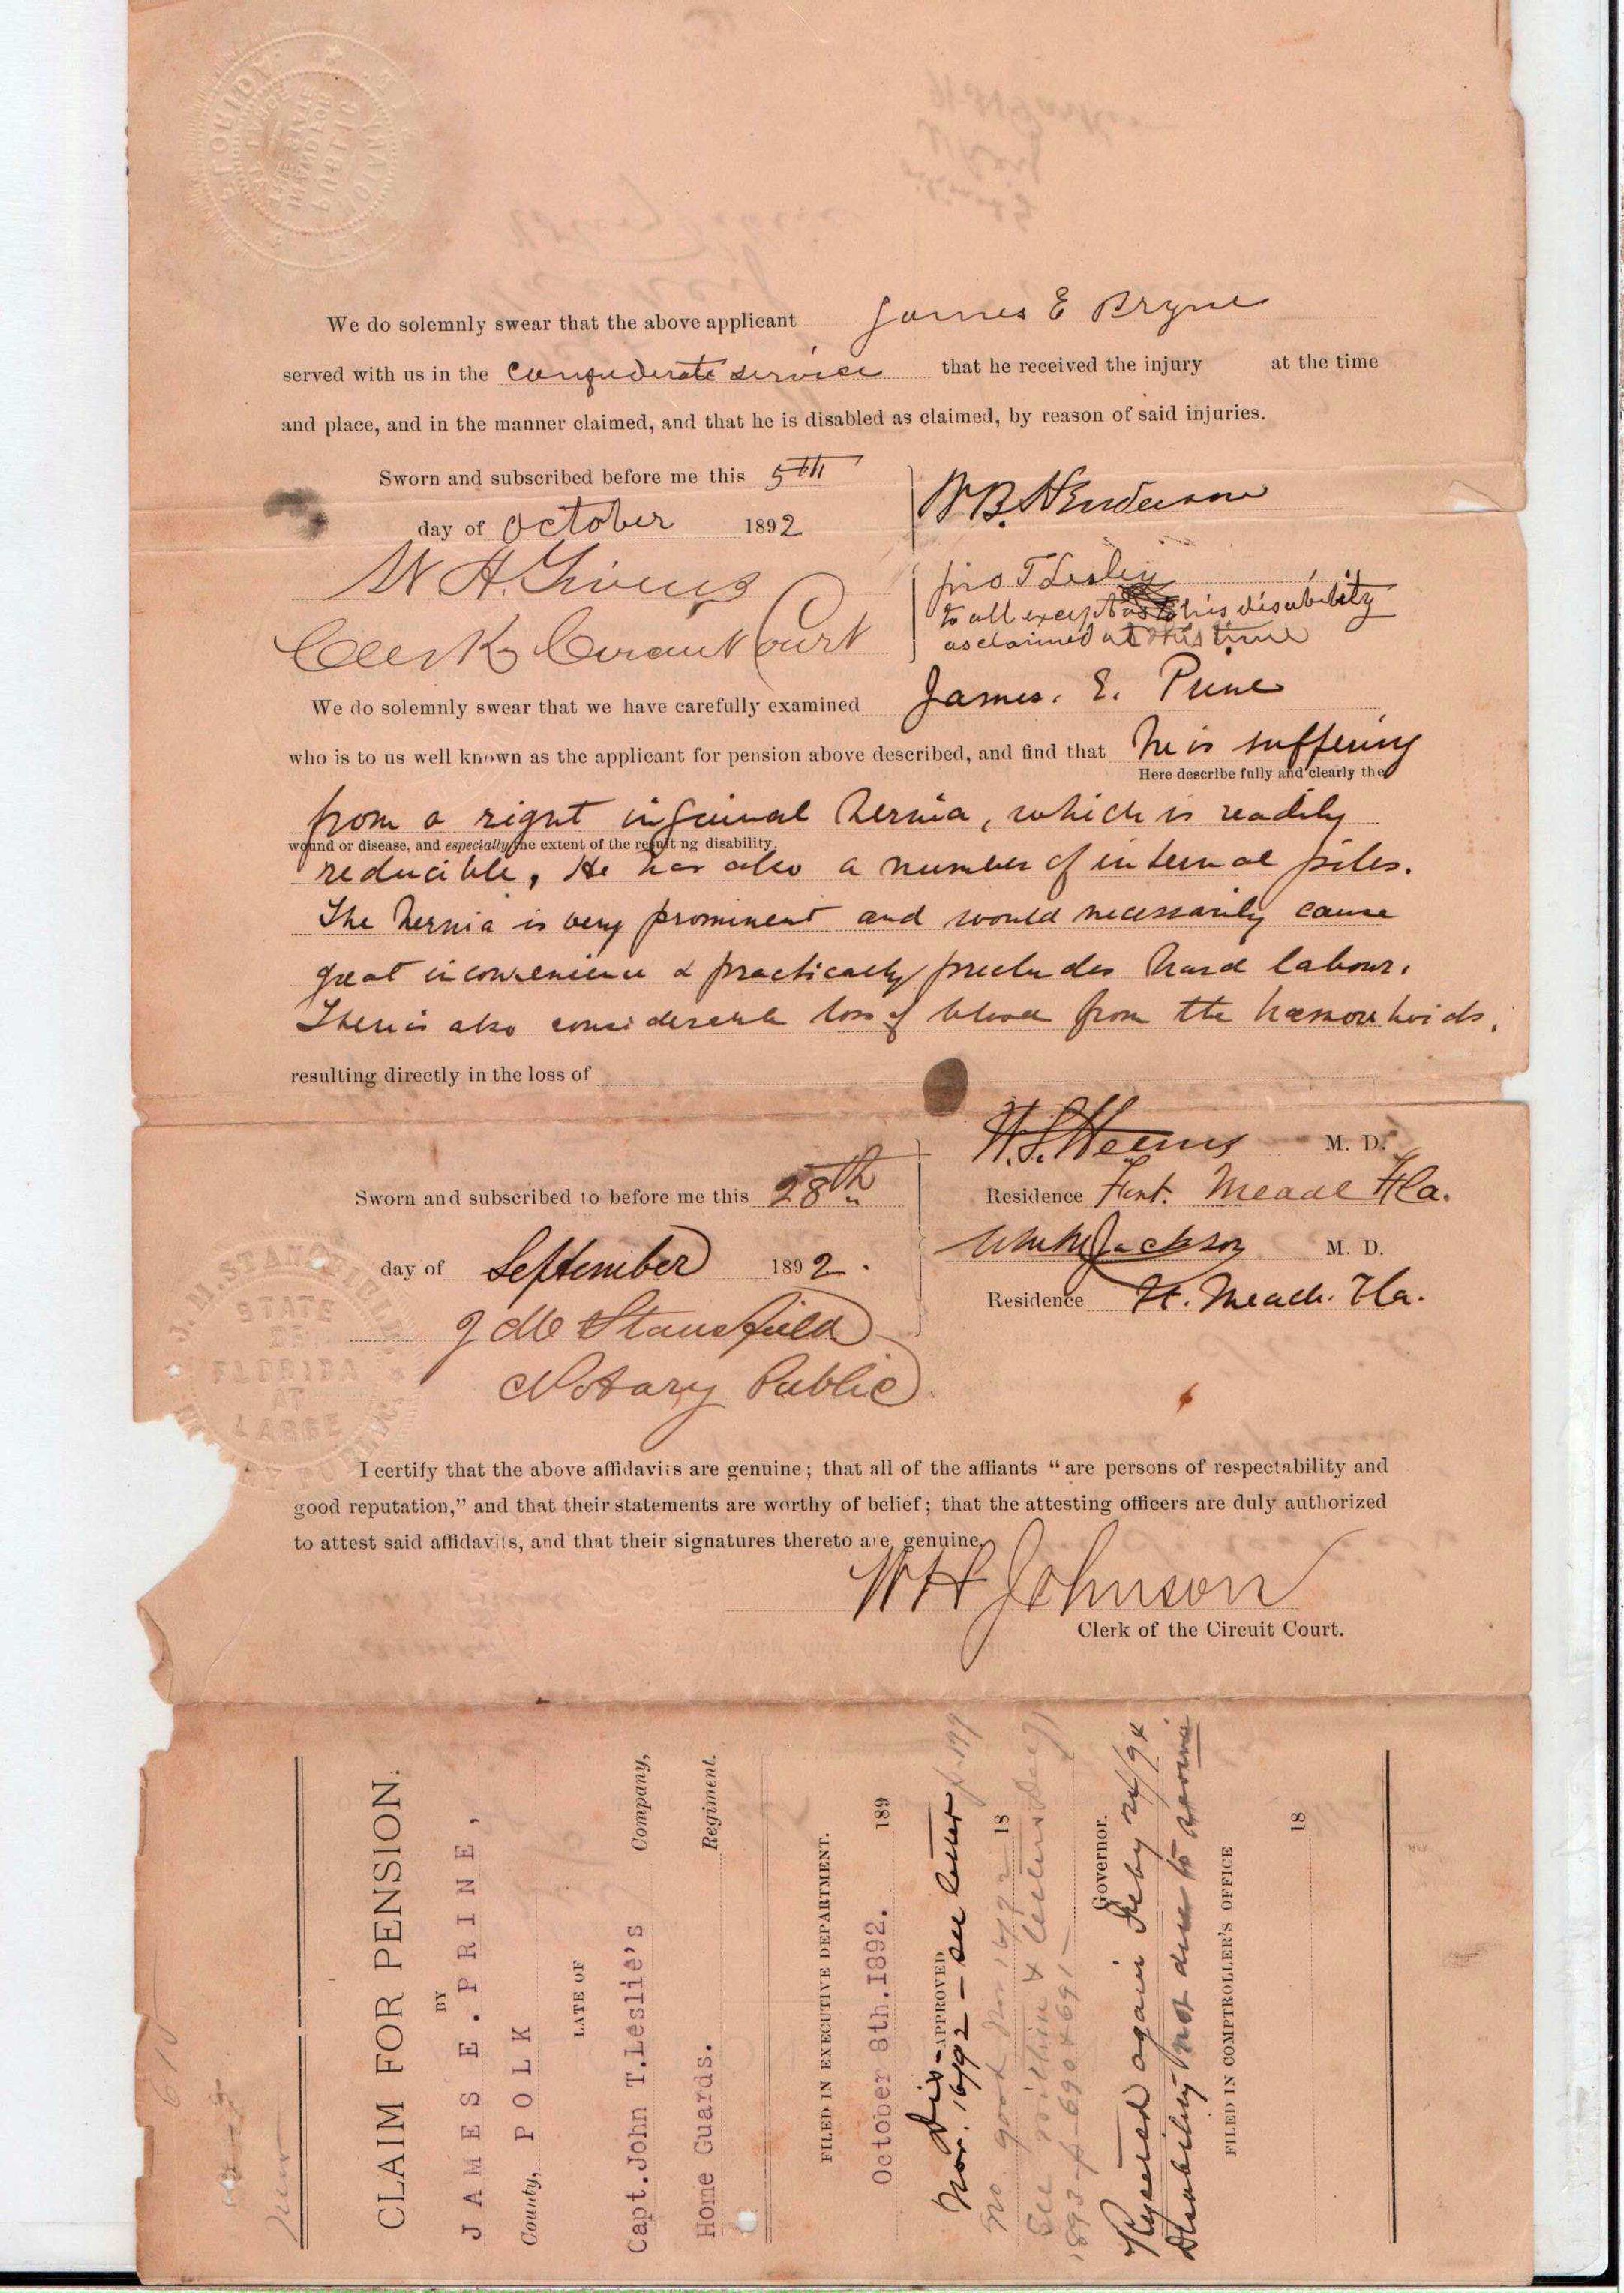 We do solemnly swear that the above applicant James E Bryne
served with us in the Confederate service that he received the injury at the time
and place, and in the manner claimed, and that he is disabled as claimed, by reason of said injuries.
Sworn and subscribed before me this 5TH
day of October 1892
W B. Henderson
W A. Givens
Clerk Circuit Court
Jno T Lesley
to all except as to his disability
as claimed at this time
We do solemnly swear that we have carefully examined James. E. Prine
who is to us well known as the applicant for pension above described, and find that he is suffering
Here describe fully and clearly the
from a right inguinal hernia, which is readily
wound or disease, and especially the extent of the result ng disability.
reducible, He has also a number of internal piles.
The hernia is very prominent and would necessarily cause
great inconvenience & practically precludes hard labour.
There is also considerable loss of blood from the haemorrhoids.
resulting directly in the loss of
M. D.
Sworn and subscribed to before me this 28th
Residence Fort. Meade Fla.
Jackson M. D.
day of September 1892.
Residence Ft. Meade. Fla.
J M Stansfield
Notary Public.
STATE
OF
FLORIDA
AT
LARGE
I certify that the above affidavits are genuine; that all of the affiants "are persons of respectability and
good reputation," and that their statements are worthy of belief; that the attesting officers are duly authorized
to attest said affidavits, and that their signatures thereto are genuine.
W H Johnson
Clerk of the Circuit Court.
CLAIM FOR PENSION.
BY
JAMES E. PRINE,
County, POLK
LATE OF
Capt. John T. Leslie's Company,
Home Guards. Regiment.
FILED IN EXECUTIVE DEPARTMENT.
October 8th. 1892. 189
Dis-APPROVED
Nov. 16/92 - see letter p. 199
18
Governor.
Rejected again Feby 24/94
Disability not due to service
FILED IN COMPTROLLER'S OFFICE
18